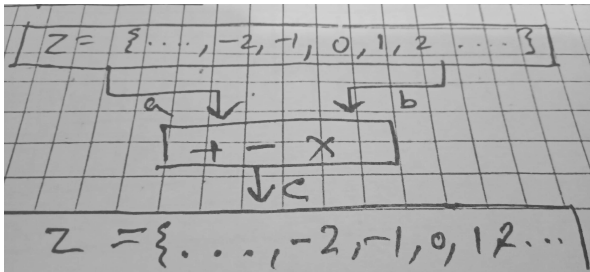 Z = {....,-2,-1, 0,1,2 ....}
a b
+ - ×
c
Z ={. . ..,-2,-1,0,1,2...